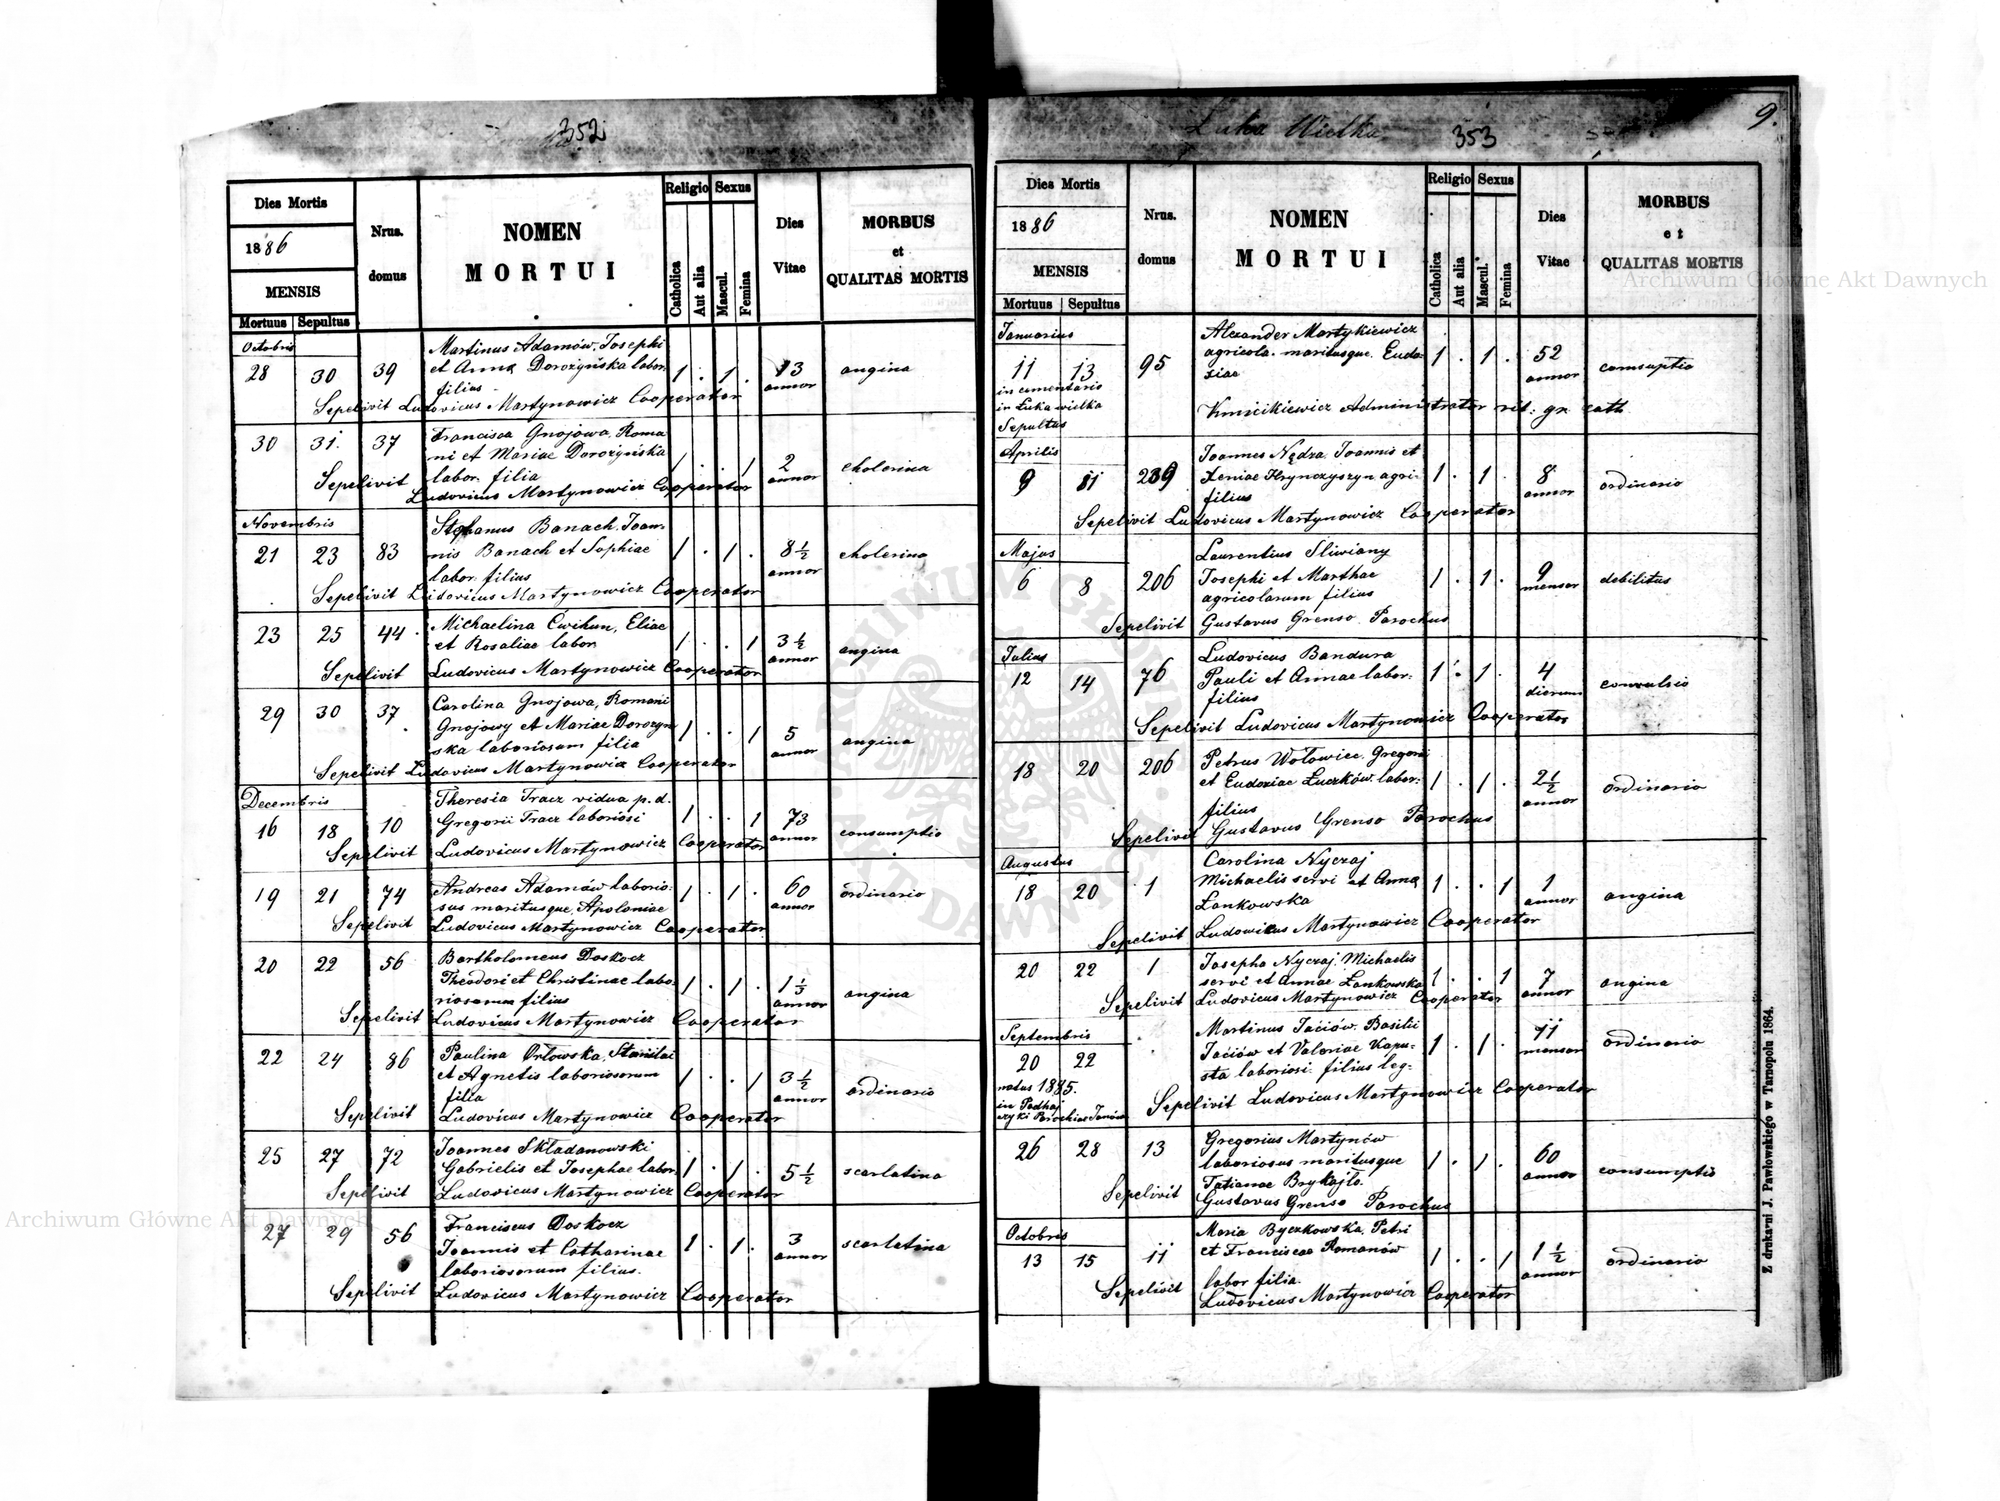 352
Dies Mortis
1886
MENSIS
Mortuus Sepultus
Nrus.
domus
NOMEN
MORTUI
Religio Sexus
Catholica
Aut alia
Mascul.
Femina
Dies
Vitae
MORBUS
et
QUALITAS MORTIS
Octobris
28 30 39 Martinus Adamów, Josephi
et Anna Dorożyńska labor.
filius
1 . 1 . 13 annor angina
Sepelivit Ludovicus Martynowicz Cooperator
30 31. 37 Francisca Gnojowa, Roma
ni et Mariae Dorożyńska
labor. filia
1 . . 1 2 annor cholerina
Sepelivit Ludovicus Martynowicz Cooperator
Novembris
21 23 83 Stephanus Banach, Joan-
nis Banach et Sophiae
labor. filius
1 . 1 . 8 1/2 annor cholerina
Sepelivit Ludovicus Martynowicz Cooperator
23 25 44 Michaelina Cwihun, Eliae
et Rosaliae labor
1 . . 1 3 1/2 annor angina
Sepelivit Ludovicus Martynowicz Cooperator
29 30 37 Carolina Gnojowa, Romani
Gnojowy et Mariae Dorozyn
ska laboriosum filia
1 . . 1 5 annor angina
Sepelivit Ludovicus Martynowicz Cooperator
Decembris
16 18 10 Theresia Tracz vidua p. d.
Gregorii Tracz laboriosi
1 . . 1 73 annor consumptio
Sepelivit Ludovicus Martynowicz Cooperator
19 21 74 Andreas Adamów laborio-
sus maritusque Apoloniae
1 . 1 . 60 annor ordinario
Sepelivit Ludovicus Martynowicz Cooperator
20 22 56 Bartholomeus Doskocz
Theodori et Christinae labo-
riosorum filius
1 . 1 . 1 1/3 annor angina
Sepelivit Ludovicus Martynowicz Cooperator
22 24 86 Paulina Orłowska, Stanilai
et Agnetis laboriosorum
filia
1 . . 1 3 1/2 annor ordinario
Sepelivit Ludovicus Martynowicz Cooperator
25 27 72 Joannes Składanowski
Gabrielis et Josephae labor.
1 . 1 . 5 1/2 scarlatina
Sepelivit Ludovicus Martynowicz Cooperator
27 29 56 Franciscus Doskocz
Joannis et Catharinae
laboriosorum filius.
1 . 1 . 3 annor scarlatina
Sepelivit Ludovicus Martynowicz Cooperator
Łuka Wielka 353 9.
Dies Mortis
1886
MENSIS
Mortuus Sepultus
Nrus.
domus
NOMEN
MORTUI
Religio Sexus
Catholica
Aut alia
Mascul.
Femina
Dies
Vitae
MORBUS
et
QUALITAS MORTIS
Januarius
11 13 95 Alexander Martykiewicz
agricola maritusque Eudo-
xiae
1 . 1 . 52 annor comsuptio
in cementario
in Łuka wielka
Sepultus
Kmicikiewicz Administrator rit: gr. cath.
Aprilis
9 11 239 Joannes Nędza, Joannis et
Xeniae Hrynczyszyn agri-
filius
1 . 1 . 8 annor ordinario
Sepelivit Ludovicus Martynowicz Cooperator
Majus
6 8 206 Laurentius Śliwiany
Josephi et Marthae
agricolarum filius
1 . 1 . 9 mensor debilitus
Sepelivit Gustavus Grenso Parochus
Julius
12 14 76 Ludovicus Bandura
Pauli et Annae labor.
filius
1 . 1 . 4 dierum convulsio
Sepelivit Ludovicus Martynowicz Cooperator
18 20 206 Petrus Wołowiec, Gregorii
et Eudoxiae Łuczków labor:
filius
1 . 1 . 2 1/2 annor ordinario
Sepelivit Gustavus Grenso Parochus
Augustus
18 20 1 Carolina Nyczaj
Michaelis servi et Anna
Łankowska
1 . . 1 1 annor angina
Sepelivit Ludovicus Martynowicz Cooperator
20 22 1 Josepha Nyczaj, Michaelis
servi et Annae Łankowska
1 . . 1 7 annor angina
Sepelivit Ludovicus Martynowicz Cooperator
Septembris
20 22 Martinus Jaciów, Basilii
Jaciów et Valeriae Kapu-
sta laboriosi filius leg-
1 . 1 . 11 mensor ordinario
natus 1885.
in Podhaj
czyki Parochiae Janów
Sepelivit Ludovicus Martynowicz Cooperator
26 28 13 Gregorius Martynów
laboriosus maritusque
Tatianae Brykajło.
1 . 1 . 60 annor consumptio
Sepelivit Gustavus Grenso Parochus
Octobris
13 15 11 Maria Byczkowska, Petri
et Franciscae Romanów
labor filia.
1 . . 1 1 1/2 annor ordinario
Sepelivit Ludovicus Martynowicz Cooperator
Z drukarni J. Pawłowskiego w Tarnopolu 1864.
Archiwum Główne Akt Dawnych
Archiwum Główne Akt Dawnych
ARCHIWUM GŁÓWNE AKT DAWNYCH